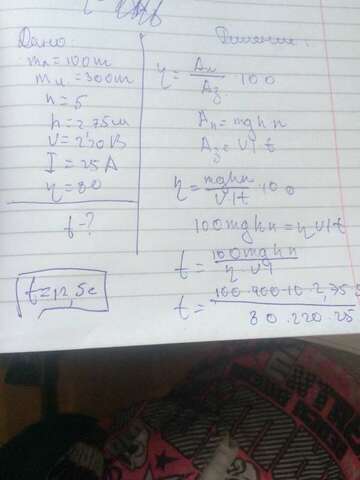 Дано:
mл=100т
mк=300т
n=5
h=2,75м
V=220В
I=25А
η=80
t-?
t=12,5с
Решение:
η=Aп/Aз 100
Aп=mghn
Aз=VIt
η=mghn/VIt 100
100mghn=ηVIt
t=100mghn/η·VI
t=100·400·10·2,75·5/80·220·25